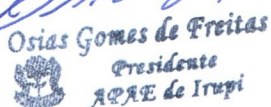 Osias Gomes de Freitas
Presidente
APAE de Irupi